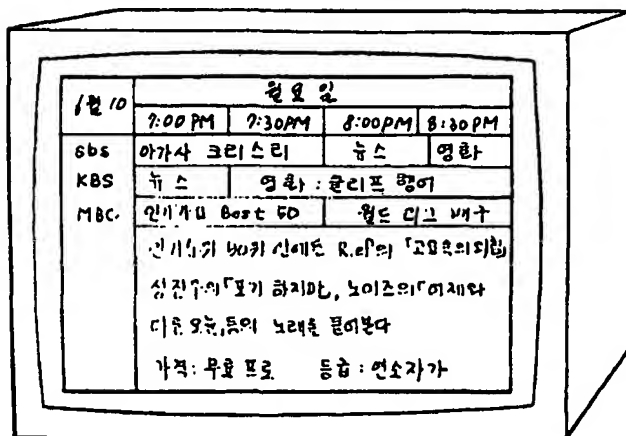 월요일
1월 10
7:00 PM 7:30PM 8:00PM 8:30PM
SBS 아가사 크리스티 뉴스 영화
KBS 뉴스 영화 : 클리프 행어
MBC 인기가요 Best 50 월드 리그 배구
인기가요 50위 안에든 R.ef의 「고요속의외침
성진우의「포기 하지마, 노이즈의「어제와
다른 오늘,등의 노래를 들어본다
가격: 무료 프로 등급 : 연소자가